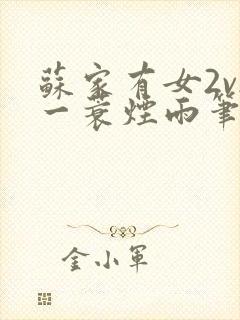 蘇家有女2v
一蓑煙雨筆
金小軍